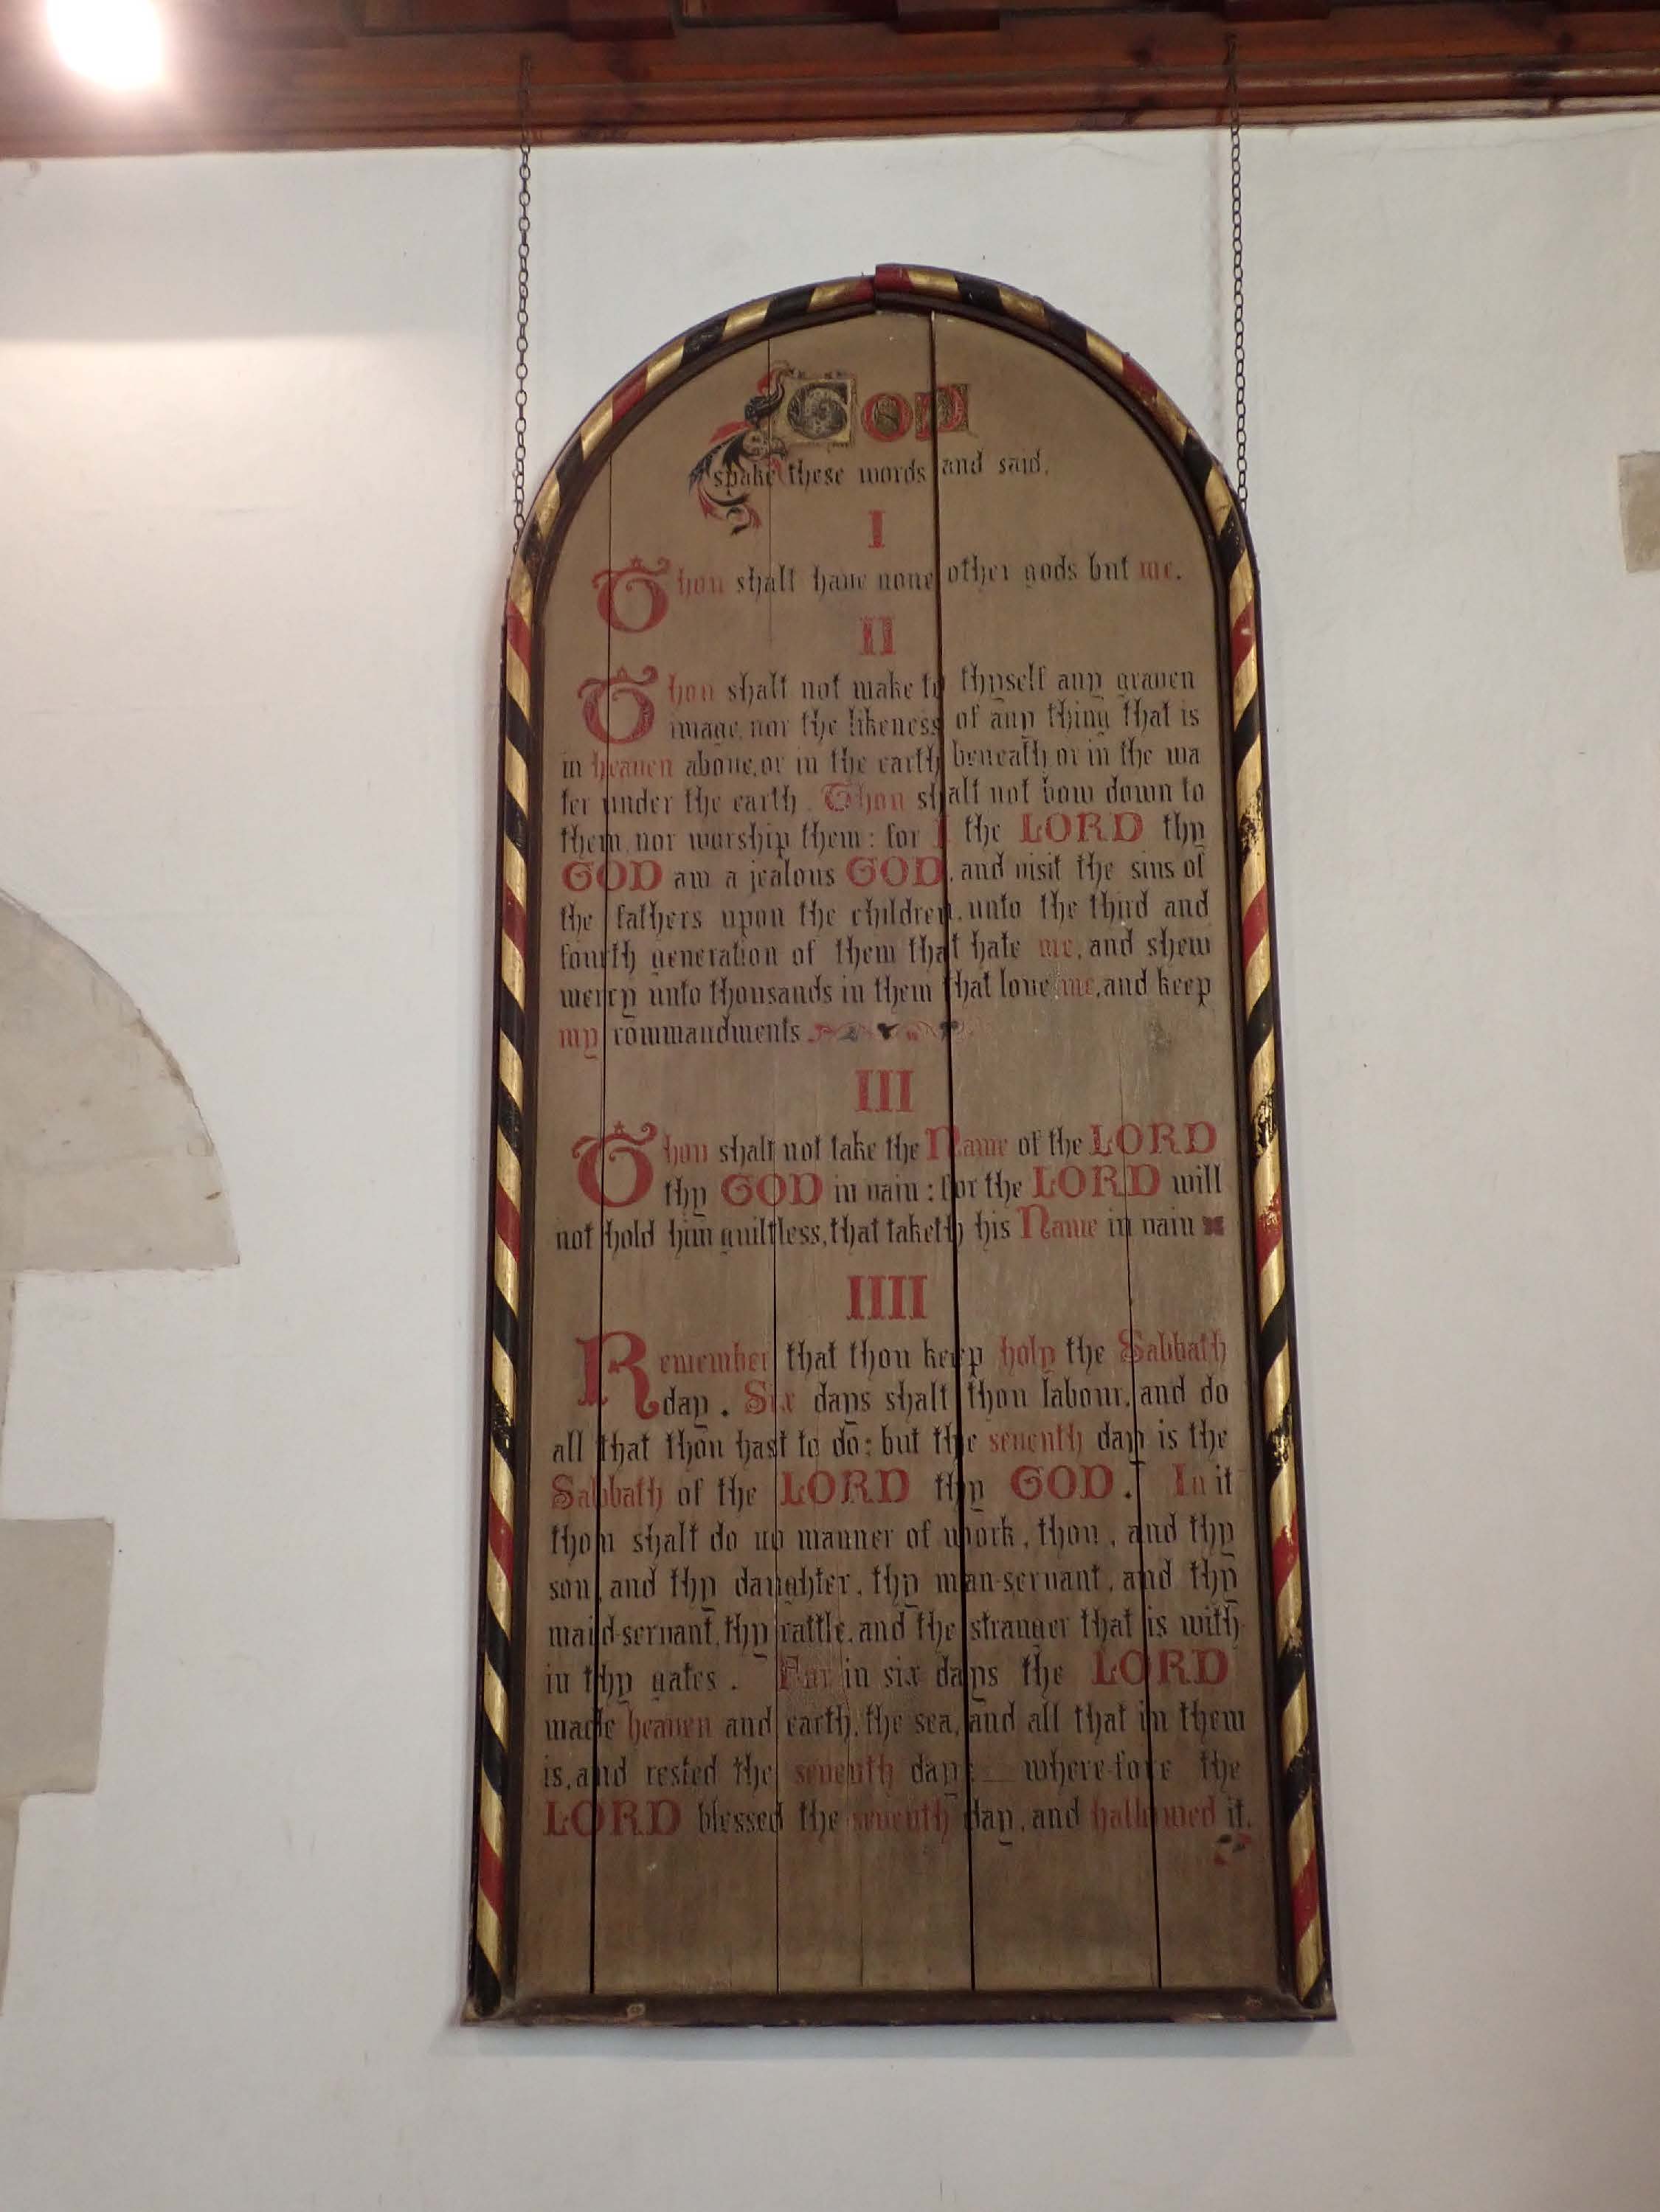 GOD
spake these words and said,
I
Thou shalt have none other gods but me.
II
Thou shalt not make to thyself any graven
image, nor the likeness of any thing that is
in heaven above, or in the earth beneath, or in the wa
ter under the earth. Thou shalt not bow down to
them, nor worship them: for I the LORD thy
GOD am a jealous GOD, and visit the sins of
the fathers upon the children, unto the third and
fourth generation of them that hate me, and shew
mercy unto thousands in them that love me, and keep
my commandments
III
Thou shalt not take the Name of the LORD
thy GOD in vain: for the LORD will
not hold him guiltless, that taketh his Name in vain
IIII
Remember that thou keep holy the Sabbath
day. Six days shalt thou labour, and do
all that thou hast to do: but the seventh day is the
Sabbath of the LORD thy GOD. In it
thou shalt do no manner of work, thou, and thy
son, and thy daughter, thy man-servant, and thy
maid-servant, thy cattle, and the stranger that is with-
in thy gates. For in six days the LORD
made heaven and earth, the sea, and all that in them
is, and rested the seventh day: where-fore the
LORD blessed the seventh day, and hallowed it.